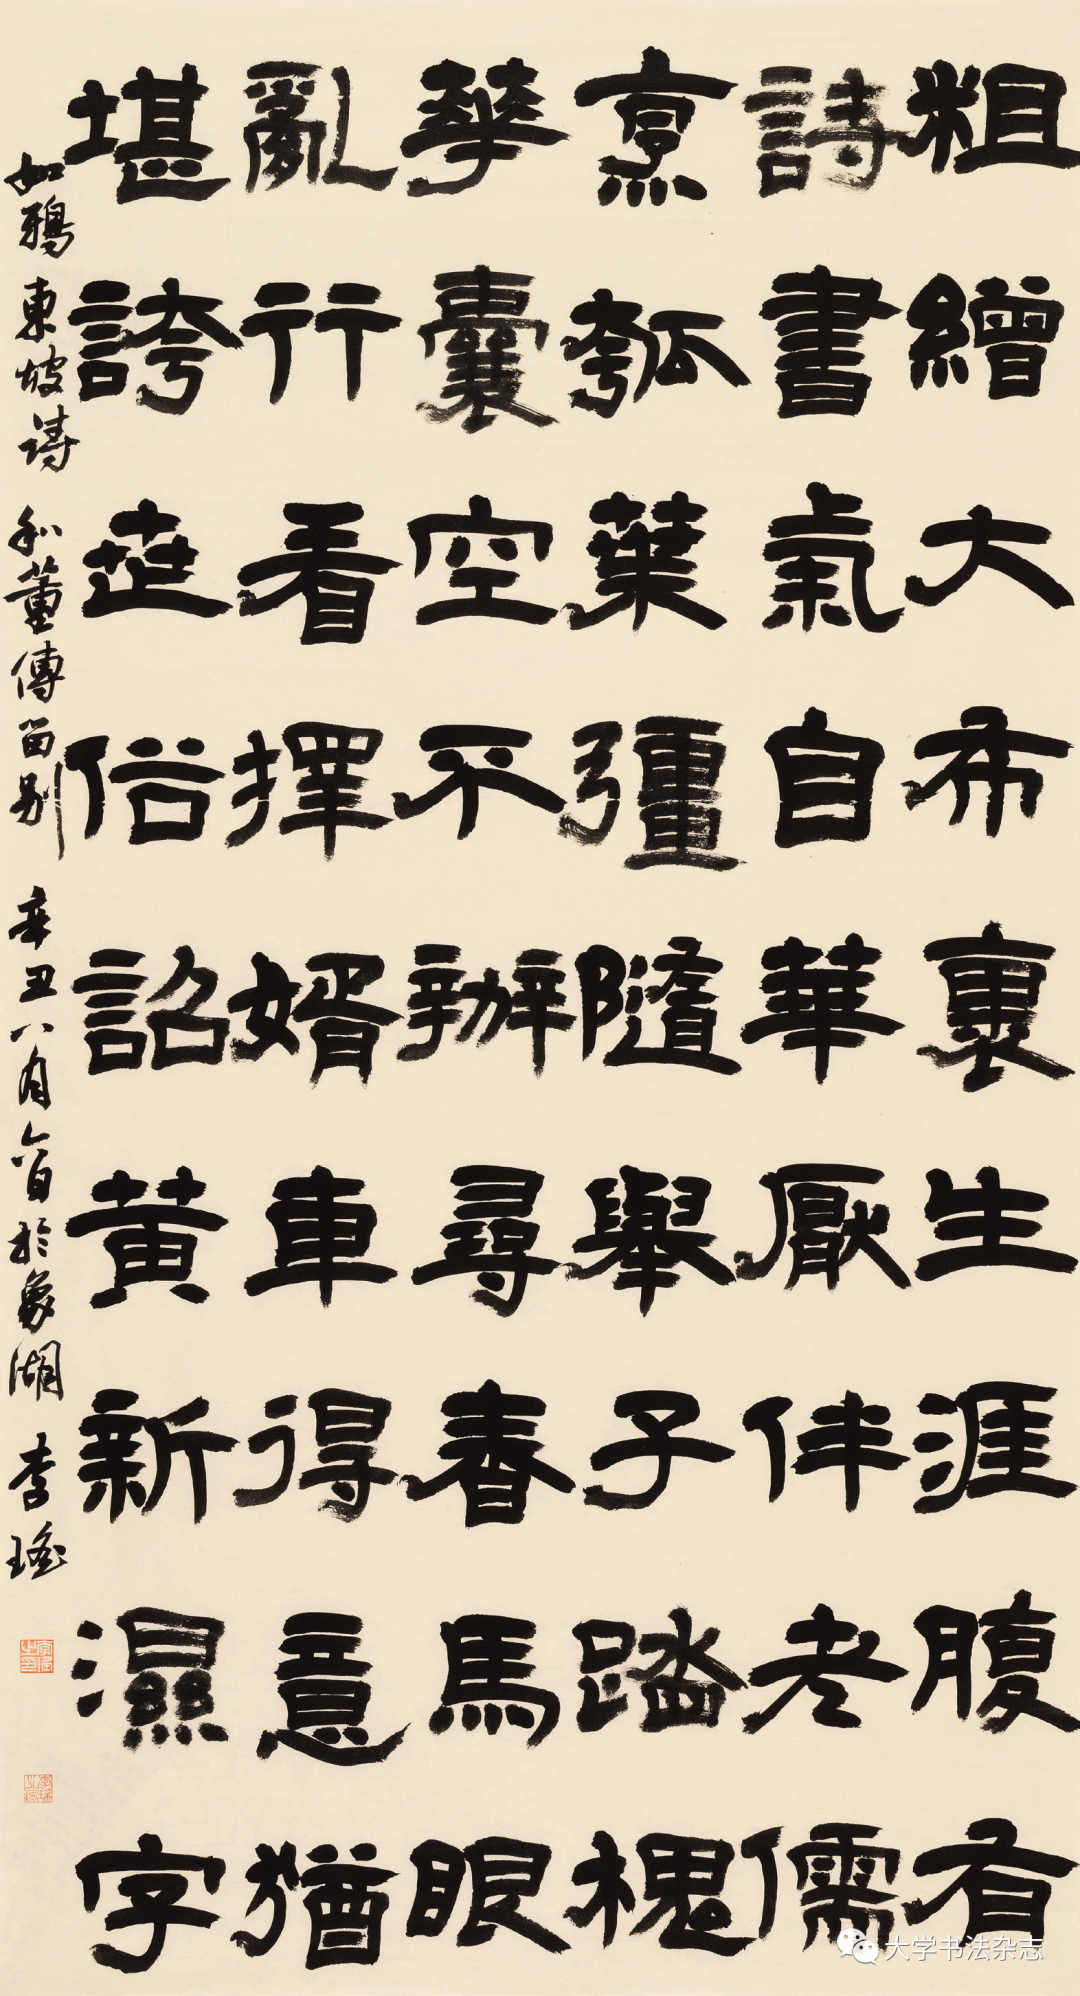 粗繒大布裹生涯腹有
詩書氣自華厭伴老儒
烹瓠葉彊隨舉子踏槐
華囊空不辦尋春馬眼
亂行看擇婿車得意猶
堪誇世俗詔黃新濕字
如鴉 東坡詩 和董傳留別 辛丑八月六日於象湖 李瑤
大学书法杂志